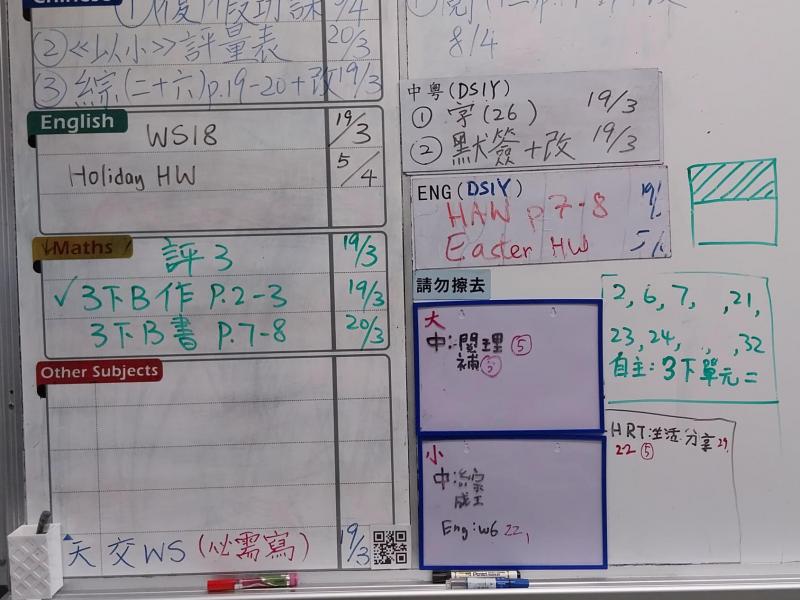 ② 《以小》評量表 20/3
③ 綜(二十六)p.19-20+改 19/3
English
WS18 19/3
Holiday HW 5/4
Maths
評3 19/3
✓3下B作 P.2-3 19/3
3下B書 P.7-8 20/3
Other Subjects
天交WS (必需寫) 19/3
8/4
中粵(DSIY)
① 字(26) 19/3
② 默簽+改 19/3
ENG(DSIY)
HAW p7-8
Easter HW
請勿擦去
大
中:閱理⑤
補⑤
小
中:
Eng:W6 22,
2, 6, 7, ,21,
23, 24, , ,32
自主:3下單元二
HRT:生活分享 29,
22 ⑤